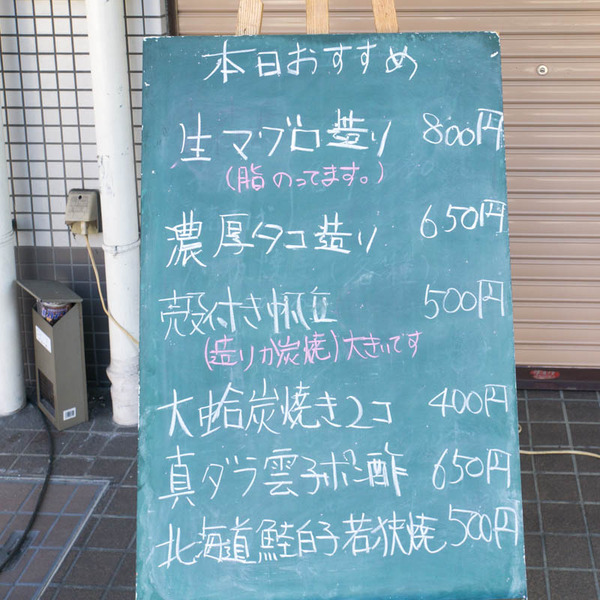 本日おすすめ
生マグロ造り 800円
(脂のってます。)
濃厚タコ造り 650円
殻付き帆立 500円
(造りか炭焼)大きいです
大蛤炭焼き2コ 400円
真ダラ雲子ポン酢 650円
北海道鮭白子若狭焼 500円